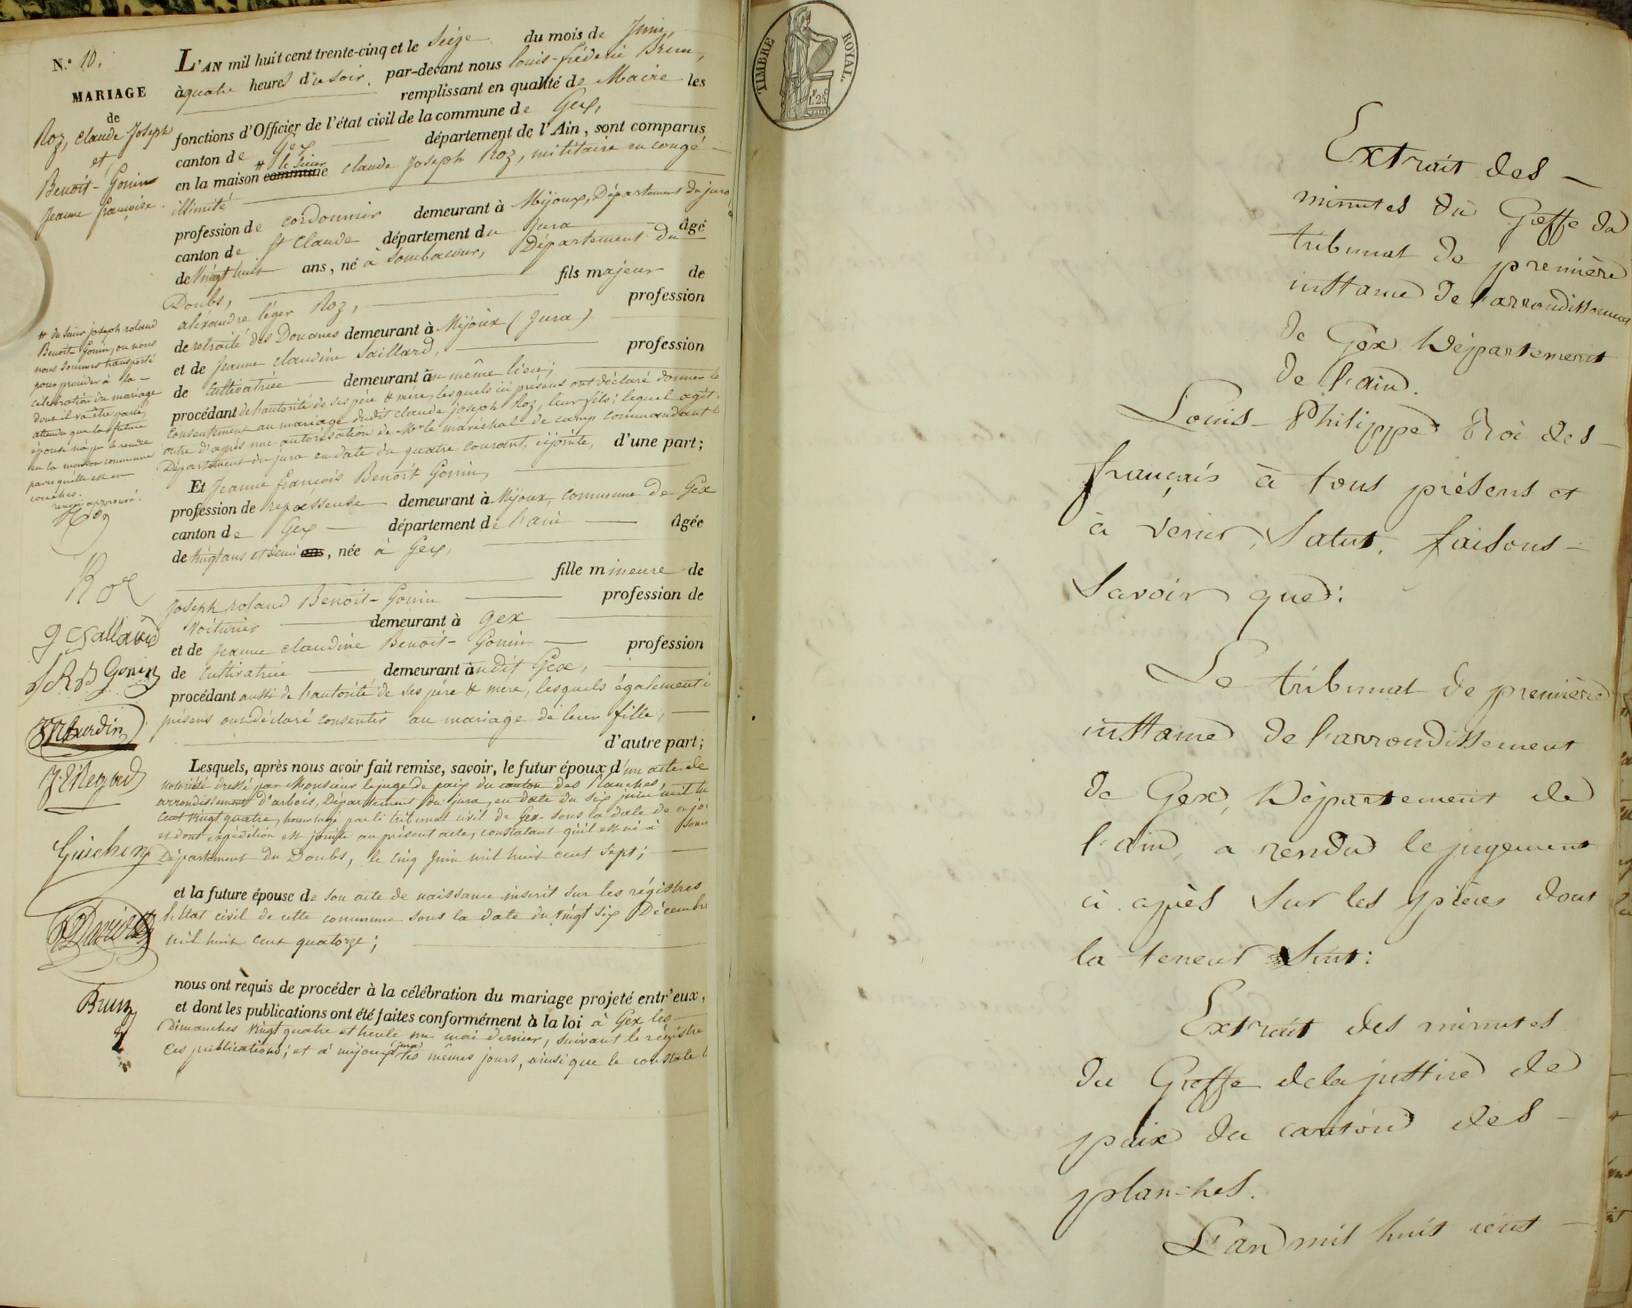 N.° 10.
MARIAGE
de
Roz, Claude Joseph
et
Benoit-Gonin
Jeanne françoise.
L'AN mil huit cent trente-cinq et le Seize du mois de Juin,
à quatre heures du soir. par-devant nous Louis-fréderic Brun,
remplissant en qualité de Maire les
fonctions d'Officier de l'état civil de la commune de Gex,
canton de Gex département de l'Ain, sont comparus
en la maison # le sieur commune Claude Joseph Roz, militaire en congé
illimité
profession de cordonnier demeurant à Mijoux, Département du jura
canton de St Claude département du Jura âgé
de vingt huit ans, né à Département du
Doubs, fils majeur de
alexandre léger Roz, profession
de retraité des Douanes demeurant à Mijoux (Jura)
et de Jeanne claudine Saillard, profession
de Cultivatrice demeurant au même lieu;
procédant de l'autorité de ses père & mère, lesquels ici présens ont déclaré donner le
consentement au mariage dudit claude joseph Roz, leur fils; lequel agit
outre d'après une autorisation de Mr le maréchal de camp commandant le
Département du jura en date du quatre courant, cijointe, d'une part;
Et Jeanne françois Benoit Gonin,
profession de repasseuse demeurant à Mijoux, commune de Gex
canton de Gex département de l'ain âgée
de vingt ans et demi ans, née à Gex,
fille mineure de
Joseph roland Benoit-Gonin profession de
Voiturier demeurant à Gex
et de jeanne claudine Benoit-Gonin profession
de Cultivatrice demeurant audit Gex,
procédant aussi de l'autorité de ses père & mere, lesquels également ici
présens ont déclaré consentir au mariage de leur fille,
d'autre part;
Lesquels, après nous avoir fait remise, savoir, le futur époux d'un acte de
notoriété dressé par Monsieur le juge de paix du canton des Planches,
arrondissement d'arbois, Département du Jura, en date du six juin mil huit
cent vingt quatre, homologué par le tribunal civil de Gex sous la date de ce jour
et dont expédition est jointe au présent acte, constatant qu'il est né à
Département du Doubs, le cinq Juin mil huit cent sept;
et la future épouse de son acte de naissance inscrit sur les régistres
l'état civil de cette commune sous la date du vingt six Décembre
mil huit cent quatorze;
nous ont requis de procéder à la célébration du mariage projeté entr'eux,
et dont les publications ont été faites conformément à la loi à Gex les
dimanches vingt quatre et trente un mai dernier, suivant le régistre
ces publications; et à mijoux (jura) les mêmes jours, ainsi que le constate
# du sieur Joseph roland
Benoit Gonin, ou nous
nous sommes transporté
pour procéder à la
célébration du mariage
dont il va être parlé,
attendu que la future
épouse n'a pu se rendre
en la maison commune
parce qu'elle est en
couches.
renvoi approuvé.
Roz
Roz
J C Saillard
J R B Gonin
Guichon
David
Brun
TIMBRE ROYAL
1f. 25
Extrait des
minutes du Greffe du
tribunal de première
instance de l'arrondissement
de Gex Département
de l'ain.
Louis-Philippe Roi des
français à tous présens et
à venir, Salut, faisons
Savoir que:
Le tribunal de première
instance de l'arrondissement
de Gex, Département de
l'ain, a rendu le jugement
ci après Sur les pièces dont
la teneur Suit:
Extrait des minutes
du Greffe de la justice de
paix du canton des
planches.
L'an mil huit cent